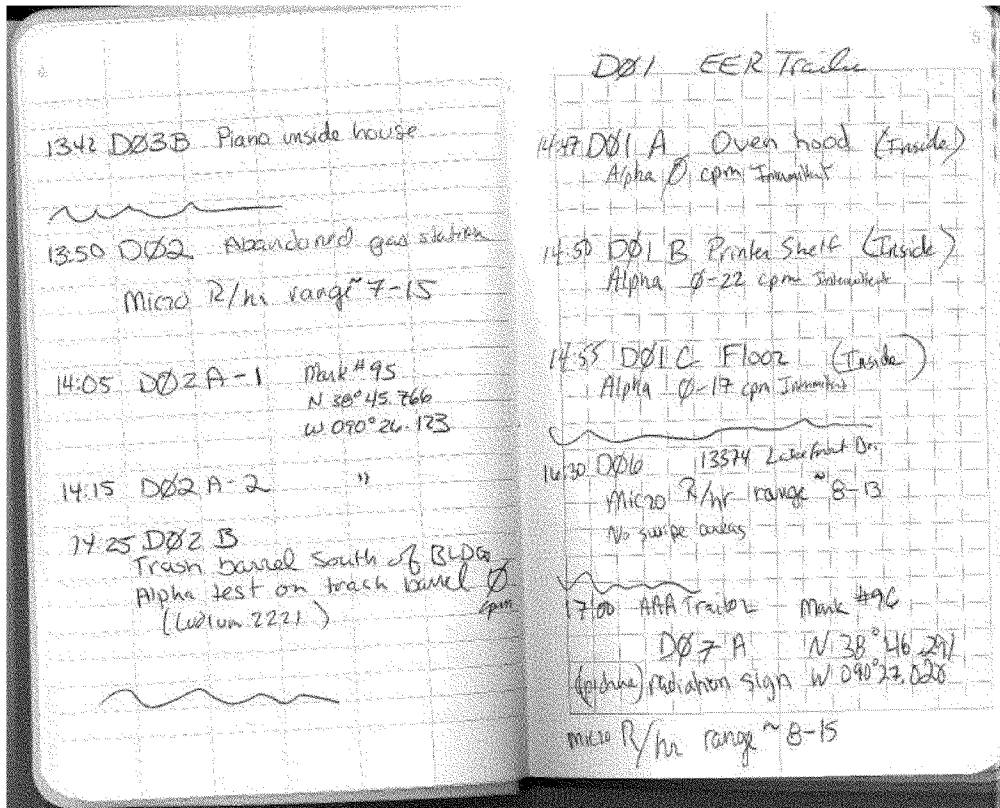 4
13:42 DØ3B Piano inside house
13:50 DØ2 Abandoned gas station
Micro R/hr range ~ 7-15
14:05 DØ2A-1 Mark #95
N 38° 45.766
W 090° 26.123
14:15 DØ2A-2 "
14:25 DØ2B
Trash barrel South of BLDG
Alpha test on trash barrel Ø
cpm
(Ludlum 2221)
5
DØ1 EER Trailer
14:47 DØ1 A Oven hood (Inside)
Alpha Ø cpm Intermittent
14:50 DØ1 B Printer Shelf (Inside)
Alpha Ø-22 cpm Intermittent
14:55 DØ1 C Floor (Inside)
Alpha Ø-17 cpm Intermittent
16:30 DØ6 13374 Lakefront Dr.
Micro R/hr range ~ 8-13
No swipe areas
17:00 AAA Trailer Mark #96
DØ7A N 38° 46.291
(picture) radiation sign W 090° 27.028
micro R/hr range ~ 8-15